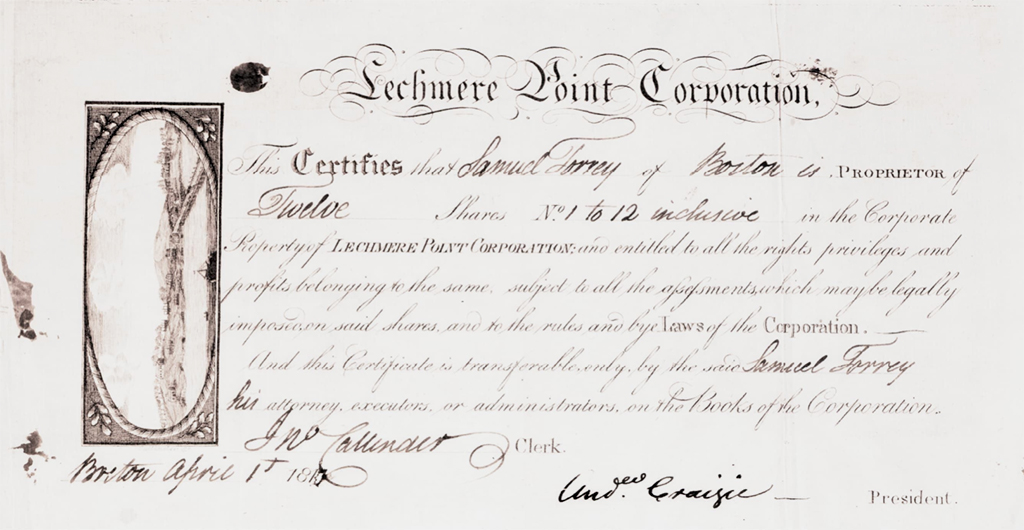 Lechmere Point Corporation,
This Certifies that Samuel Torrey of Boston is PROPRIETOR of
Twelve Shares No. 1 to 12 inclusive in the Corporate
Property of LECHMERE POINT CORPORATION; and entitled to all the rights privileges and
profits belonging to the same, subject to all the assessments, which may be legally
imposed, on said shares, and to the rules and bye Laws of the Corporation.
And this Certificate is transferable, only, by the said Samuel Torrey
his attorney, executors, or administrators, on the Books of the Corporation.
Jno Callender Clerk.
Boston April 1st
Andw. Craigie President.